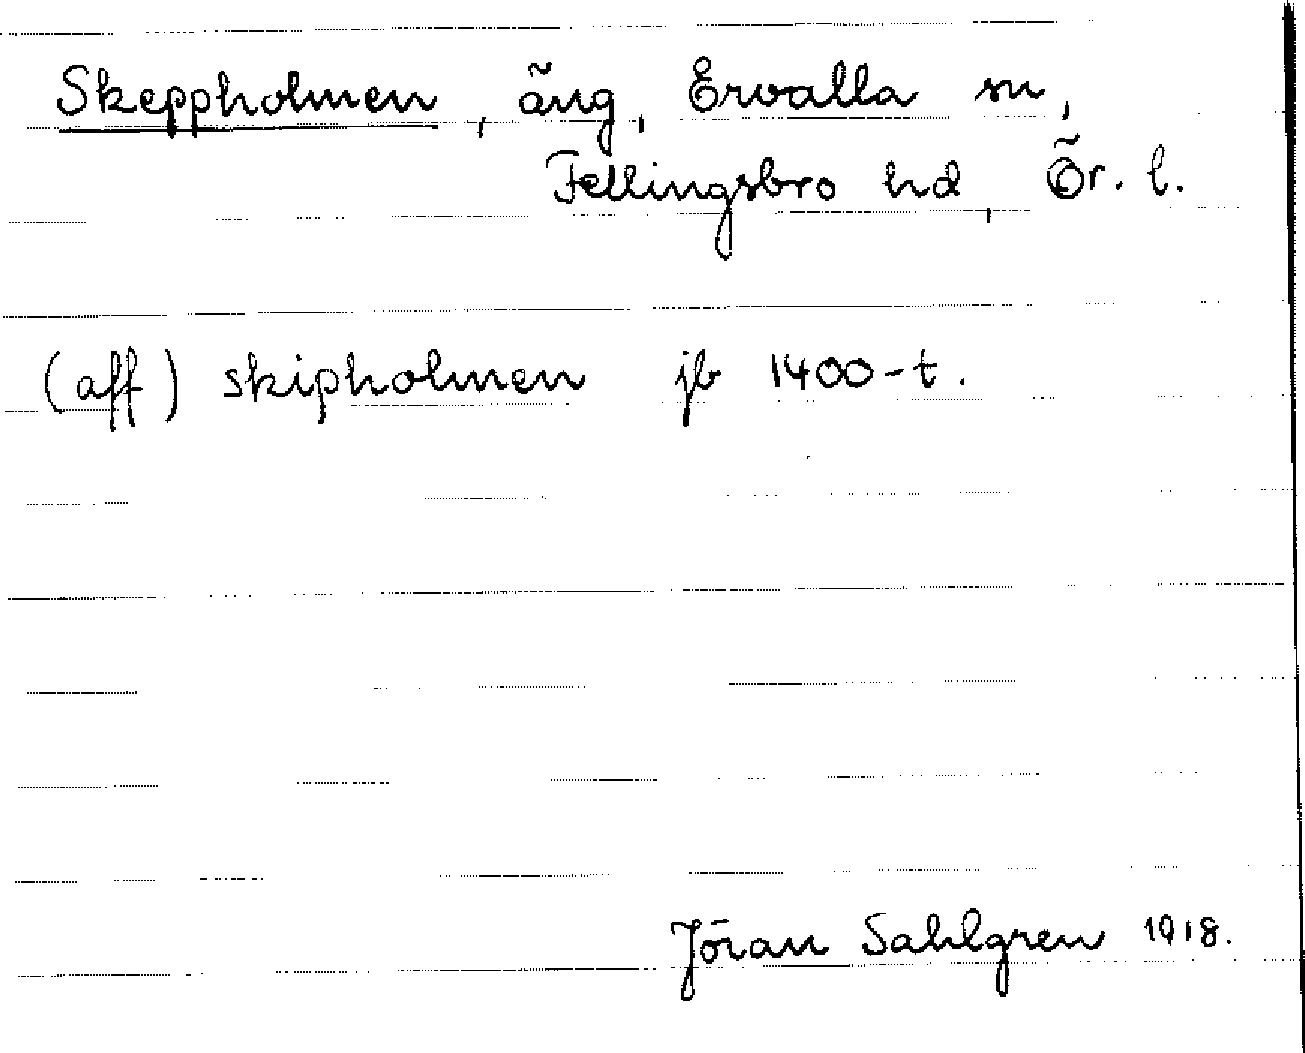 Skeppholmen, äng, Ervalla sn,
Fellingsbro hd, Ör. l.
(aff) skipholmen jb 1400-t.
Jöran Sahlgren 1918.